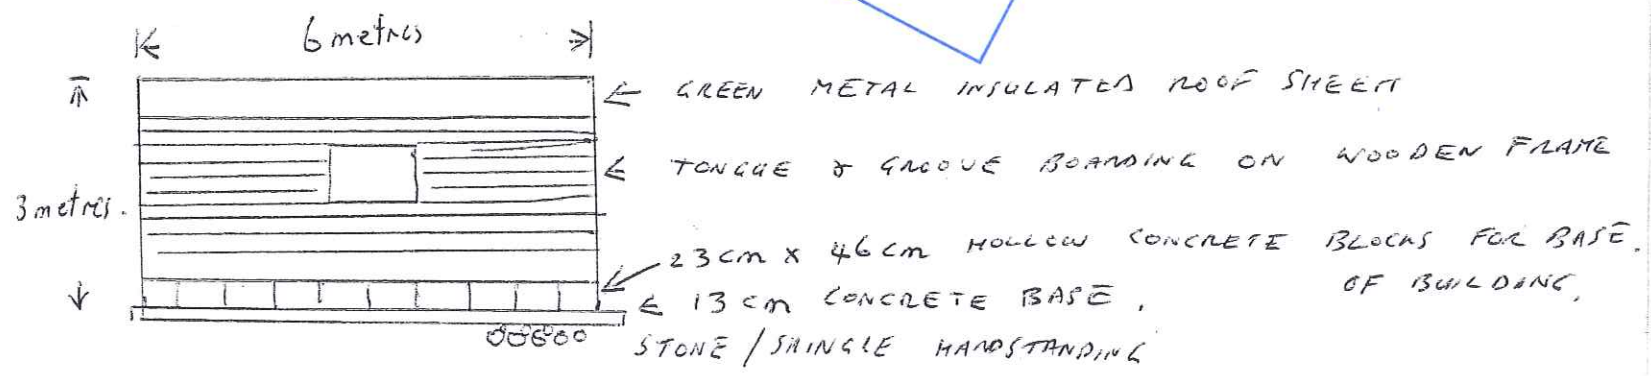 6 metres
GREEN METAL INSULATED ROOF SHEETS
TONGUE & GROOVE BOARDING ON WOODEN FRAME
3 metres.
23cm x 46cm HOLLOW CONCRETE BLOCKS FOR BASE.
OF BUILDING.
13 cm CONCRETE BASE.
STONE/SHINGLE HARDSTANDING